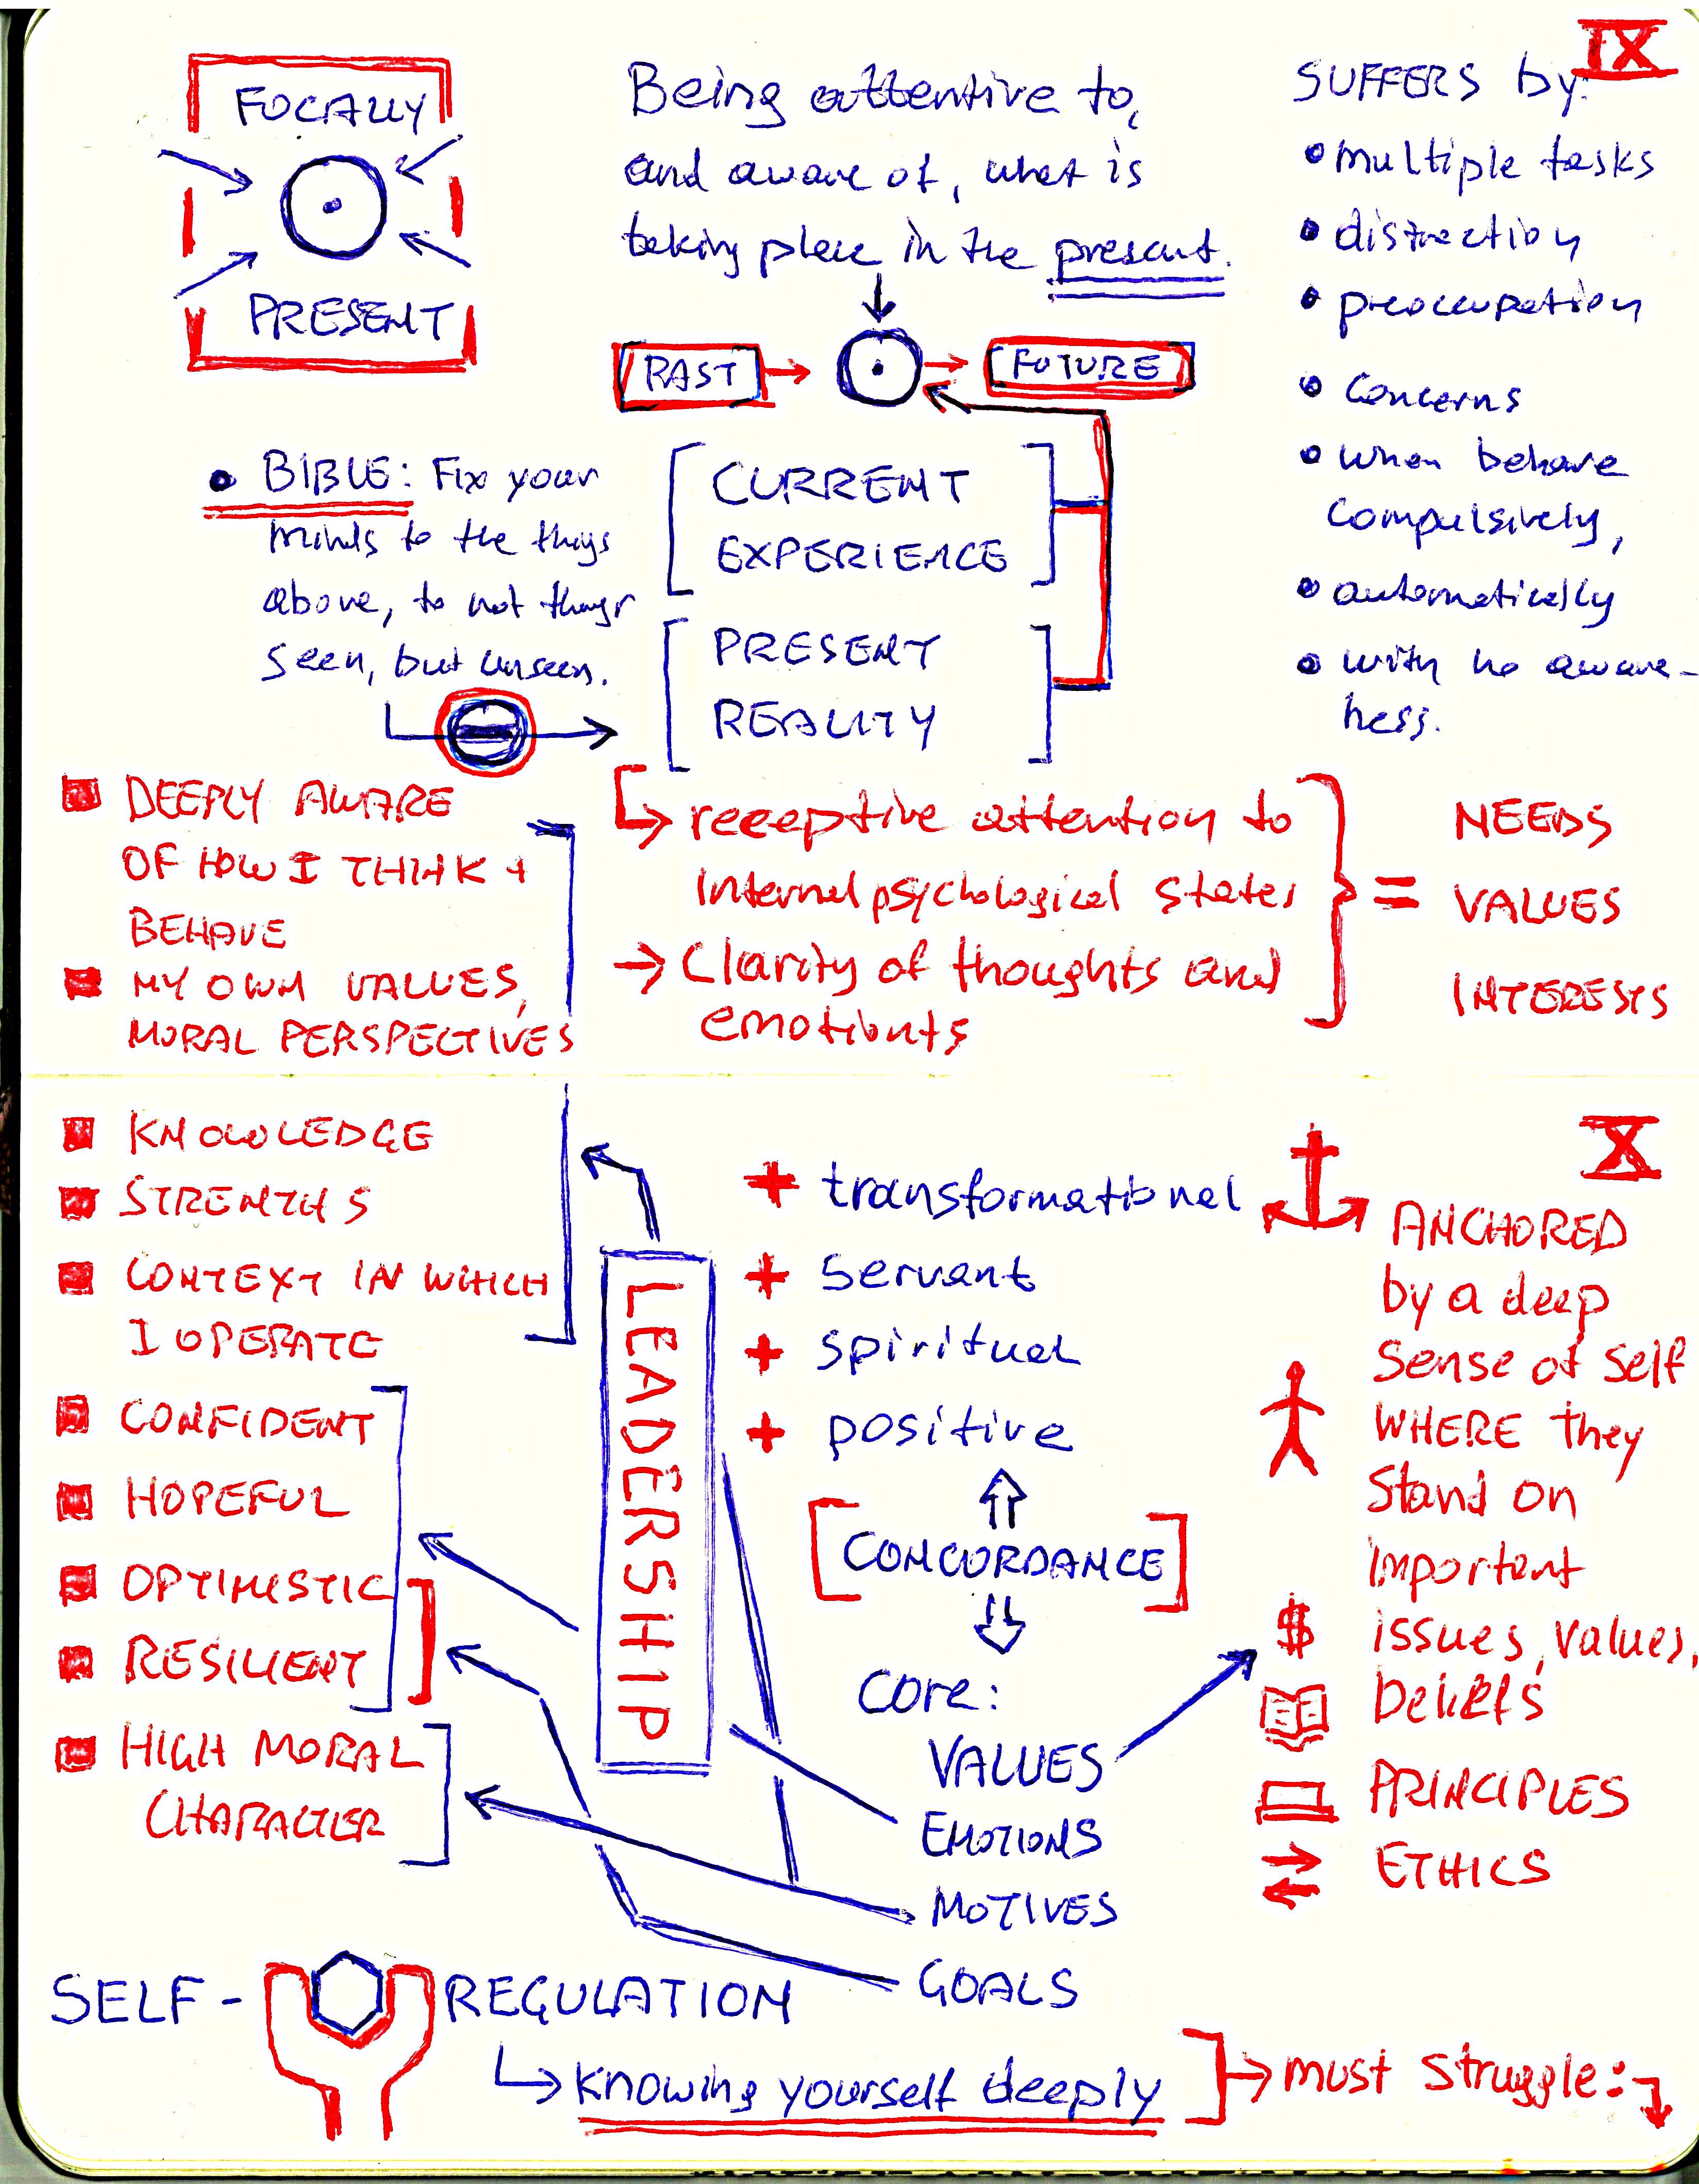 IX
FOCALLY
PRESENT
Being attentive to,
and aware of, what is
taking place in the present.
PAST
FUTURE
CURRENT
EXPERIENCE
PRESENT
REALITY
SUFFERS by:
multiple tasks
distraction
preoccupation
concerns
when behave
compulsively,
automatically
with no aware-
ness.
BIBLE: Fix your
minds to the things
above, to not things
seen, but unseen.
DEEPLY AWARE
OF HOW I THINK +
BEHAVE
MY OWN VALUES,
MORAL PERSPECTIVES
receptive attention to
internal psychological states
Clarity of thoughts and
emotionts
=
NEEDS
VALUES
INTERESTS
X
KNOWLEDGE
STRENTHS
CONTEXT IN WHICH
I OPERATE
CONFIDENT
HOPEFUL
OPTIMISTIC
RESILIENT
HIGH MORAL
CHARACTER
LEADERSHIP
+ transformational
+ servant
+ spiritual
+ positive
CONCORDANCE
Core:
VALUES
EMOTIONS
MOTIVES
GOALS
ANCHORED
by a deep
sense of self
WHERE they
stand on
important
$ issues, values,
beliefs
PRINCIPLES
ETHICS
SELF-REGULATION
knowing yourself deeply
must struggle: